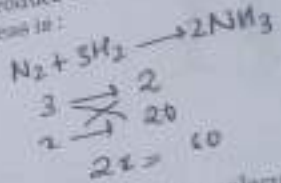 N₂ + 3H₂ → 2NH₃
3 → 2
x → 20
2x = 60